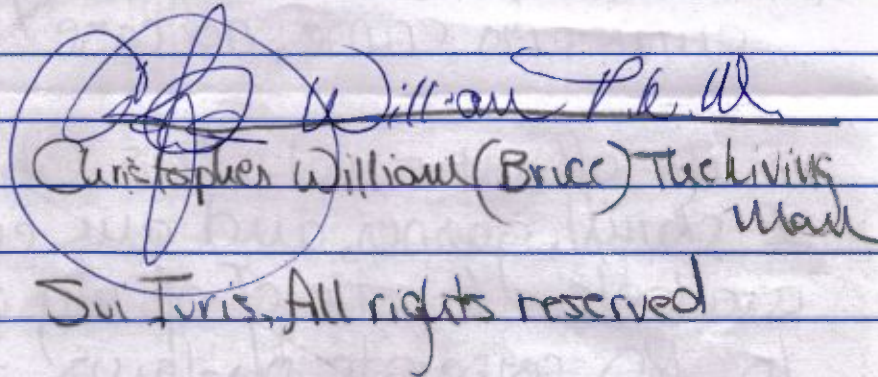 William
Christopher William (Bruce) The Living
Man
Sui Iuris, All rights reserved